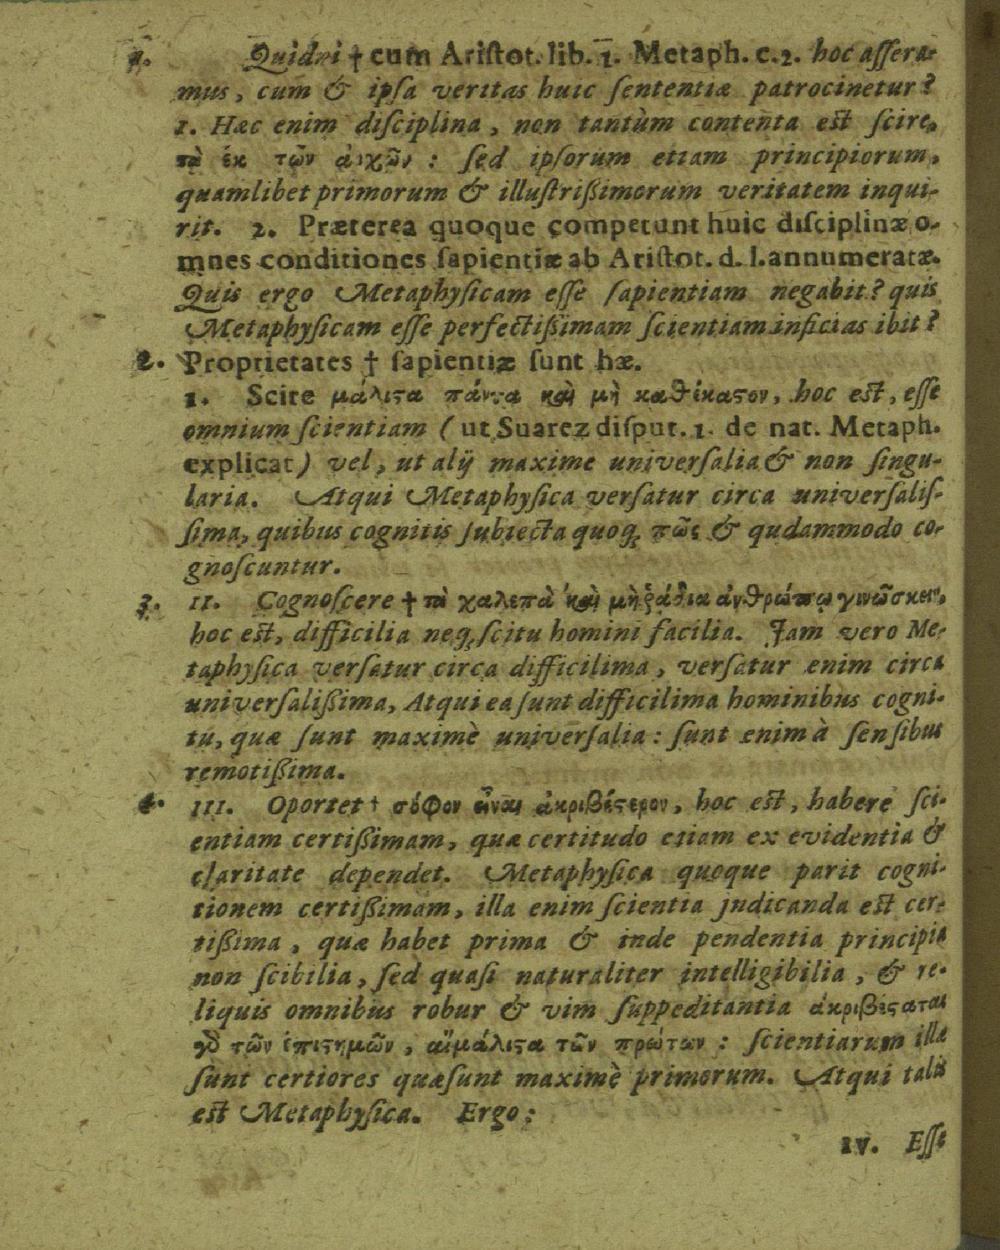 1. Quidni † cum Aristot. lib. 1. Metaph. c. 2. hoc assera-
mus, cum & ipsa veritas huic sententiæ patrocinetur?
1. Hæc enim disciplina, non tantùm contenta est scire,
τὰ ἐκ τῶν ἀρχῶν: sed ipsorum etiam principiorum,
quamlibet primorum & illustrißimorum veritatem inqui-
rit. 2. Præterea quoque competunt huic disciplinæ o-
mnes conditiones sapientiæ ab Aristot. d. l. annumeratæ.
Quis ergo Metaphysicam esse sapientiam negabit? quis
Metaphysicam esse perfectißimam scientiam inficias ibit?
2. Proprietates † sapientiæ sunt hæ.
1. Scire μάλιϛα πάντα καὶ μὴ καθέκαϛον, hoc est, esse
omnium scientiam (ut Suarez disput. 1. de nat. Metaph.
explicat) vel, ut alij maxime universalia & non singu-
laria. Atqui Metaphysica versatur circa universalis-
sima, quibus cognitis subiecta quoq; πῶς & qudammodo co-
gnoscuntur.
3. II. Cognoscere † τὰ χαλεπὰ καὶ μὴ ῥάδια ἀνθρώπῳ γινώσκειν,
hoc est, difficilia neq; scitu homini facilia. Jam vero Me-
taphysica versatur circa difficilima, versatur enim circa
universalißima, Atqui ea sunt difficilima hominibus cogni-
tu, quæ sunt maximè universalia: sunt enim à sensibus
remotißima.
4. III. Oportet † σόφον εἶναι ἀκριβέϛερον, hoc est, habere sci-
entiam certißimam, quæ certitudo etiam ex evidentia &
claritate dependet. Metaphysica quoque parit cogni-
tionem certißimam, illa enim scientia judicanda est cer-
tißima, quæ habet prima & inde pendentia principia
non scibilia, sed quasi naturaliter intelligibilia, & re-
liquis omnibus robur & vim suppeditantia ἀκριβέϛαται
γὰρ τῶν ἐπιϛημῶν, αἱ μάλιϛα τῶν πρώτων: scientiarum illæ
sunt certiores quæ sunt maximè primorum. Atqui talis
est Metaphysica. Ergo:
IV. Esse